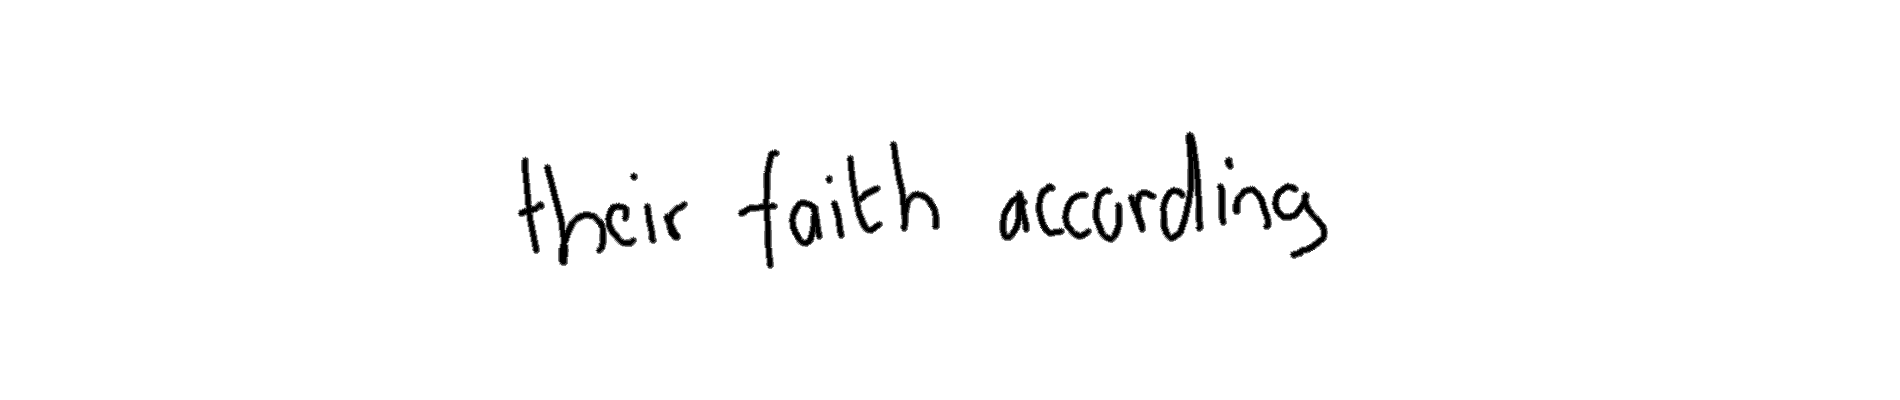 their faith according